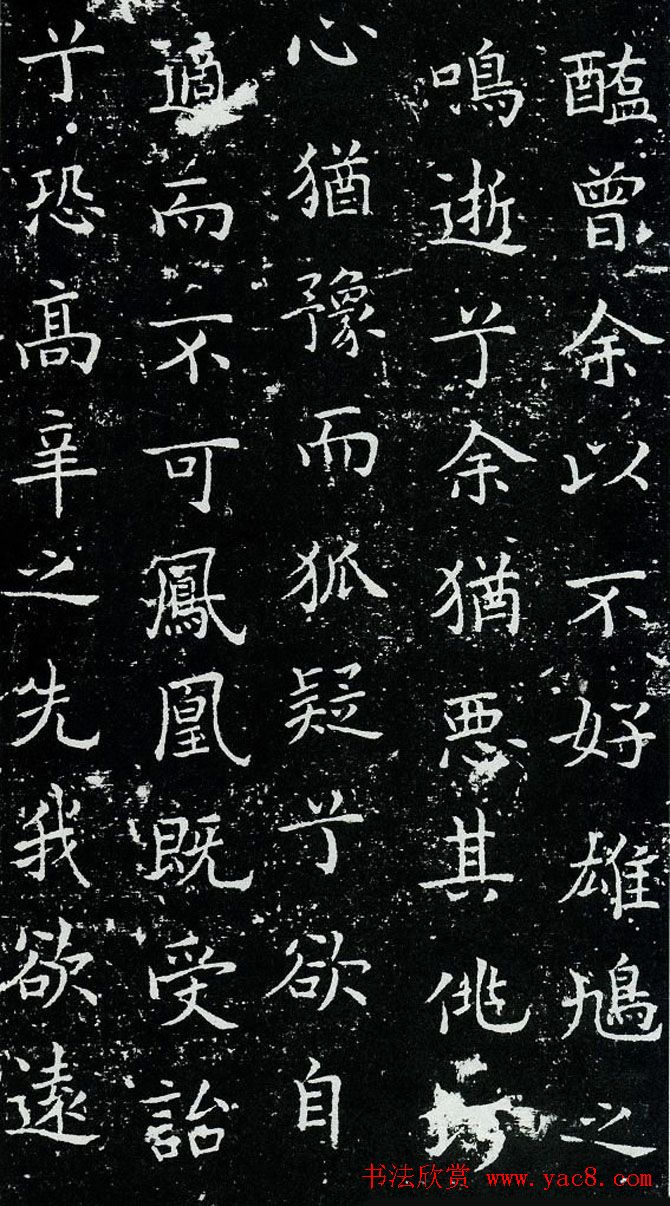 醢曾余以不好雄鳩之
鳴逝兮余猶悪其佻巧
心猶豫而狐疑兮欲自
適而不可鳳凰既受詒
兮恐髙辛之先我欲遠
书法欣赏 www.yac8.com